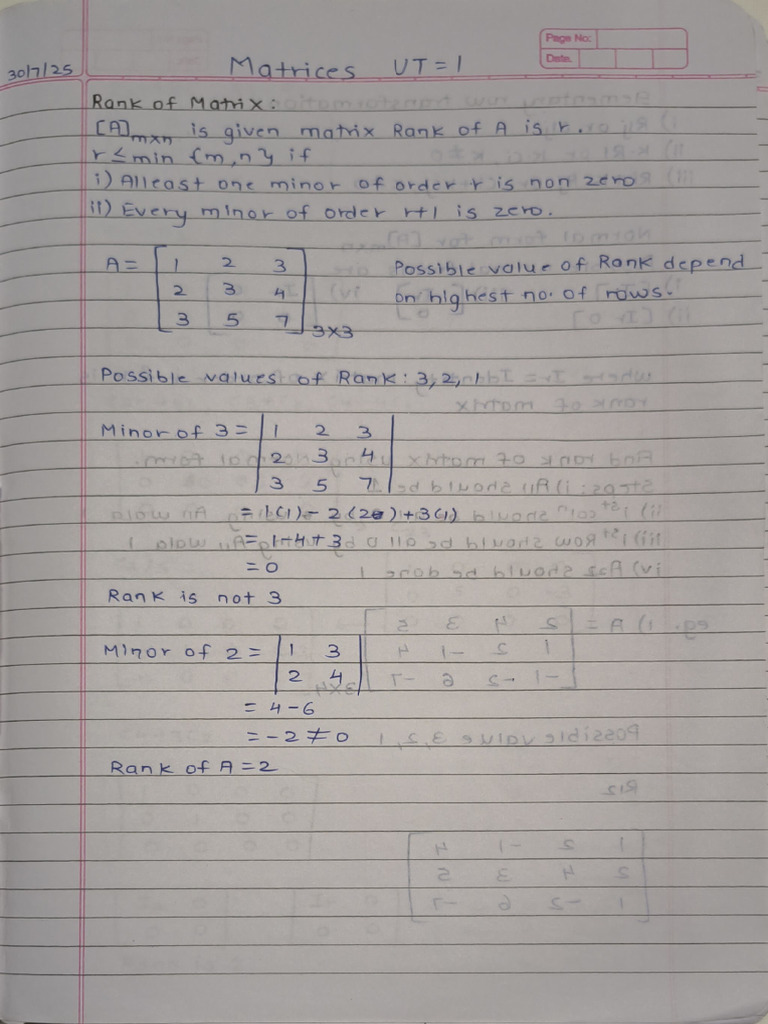 Page No:
Date.
30/7/25
Matrices UT=1
Rank of Matrix:
[A]m×n is given matrix Rank of A is r.
r ≤ min {m,n} if
i) Atleast one minor of order r is non zero
ii) Every minor of order r+1 is zero.
A = [ 1 2 3 Possible value of Rank depend
2 3 4 on highest no. of rows.
3 5 7 ] 3×3
Possible values of Rank: 3, 2, 1
Minor of 3 = | 1 2 3 |
2 3 4
3 5 7
= 1(1) - 2(2) + 3(1)
= 1-4+3
= 0
Rank is not 3
Minor of 2 = | 1 3 |
2 4
= 4-6
= -2 ≠ 0
Rank of A = 2